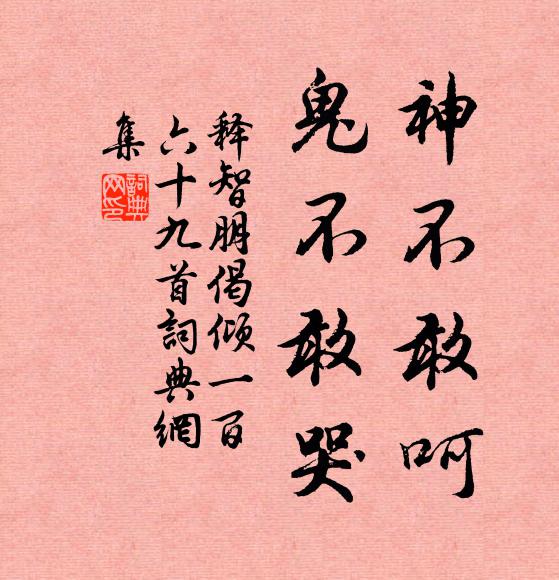 神不敢呵
鬼不敢哭
释智朋偈倾一百
六十九首詞典網
集
詞典网印